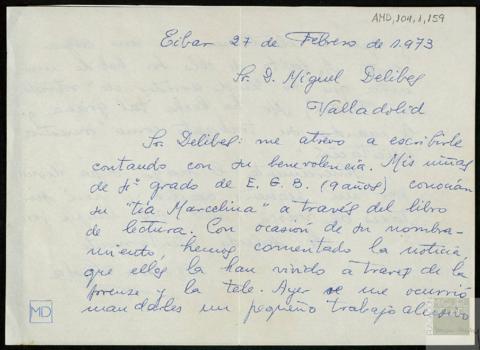 AMD, 104, 1, 159
Eibar 27 de Febrero de 1.973
Sr. D. Miguel Delibes
Valladolid
Sr. Delibes: me atrevo a escribirle
contando con su benevolencia. Mis niñas
de 4º grado de E. G. B. (9 años) conocían
su "tía Marcelina" a través del libro
de lectura. Con ocasión de su nombra-
miento, hemos comentado la noticia,
que ellas la han vivido a traves de la
prensa y la tele. Ayer se me ocurrió
mandarles un pequeño trabajo alusivo
MD